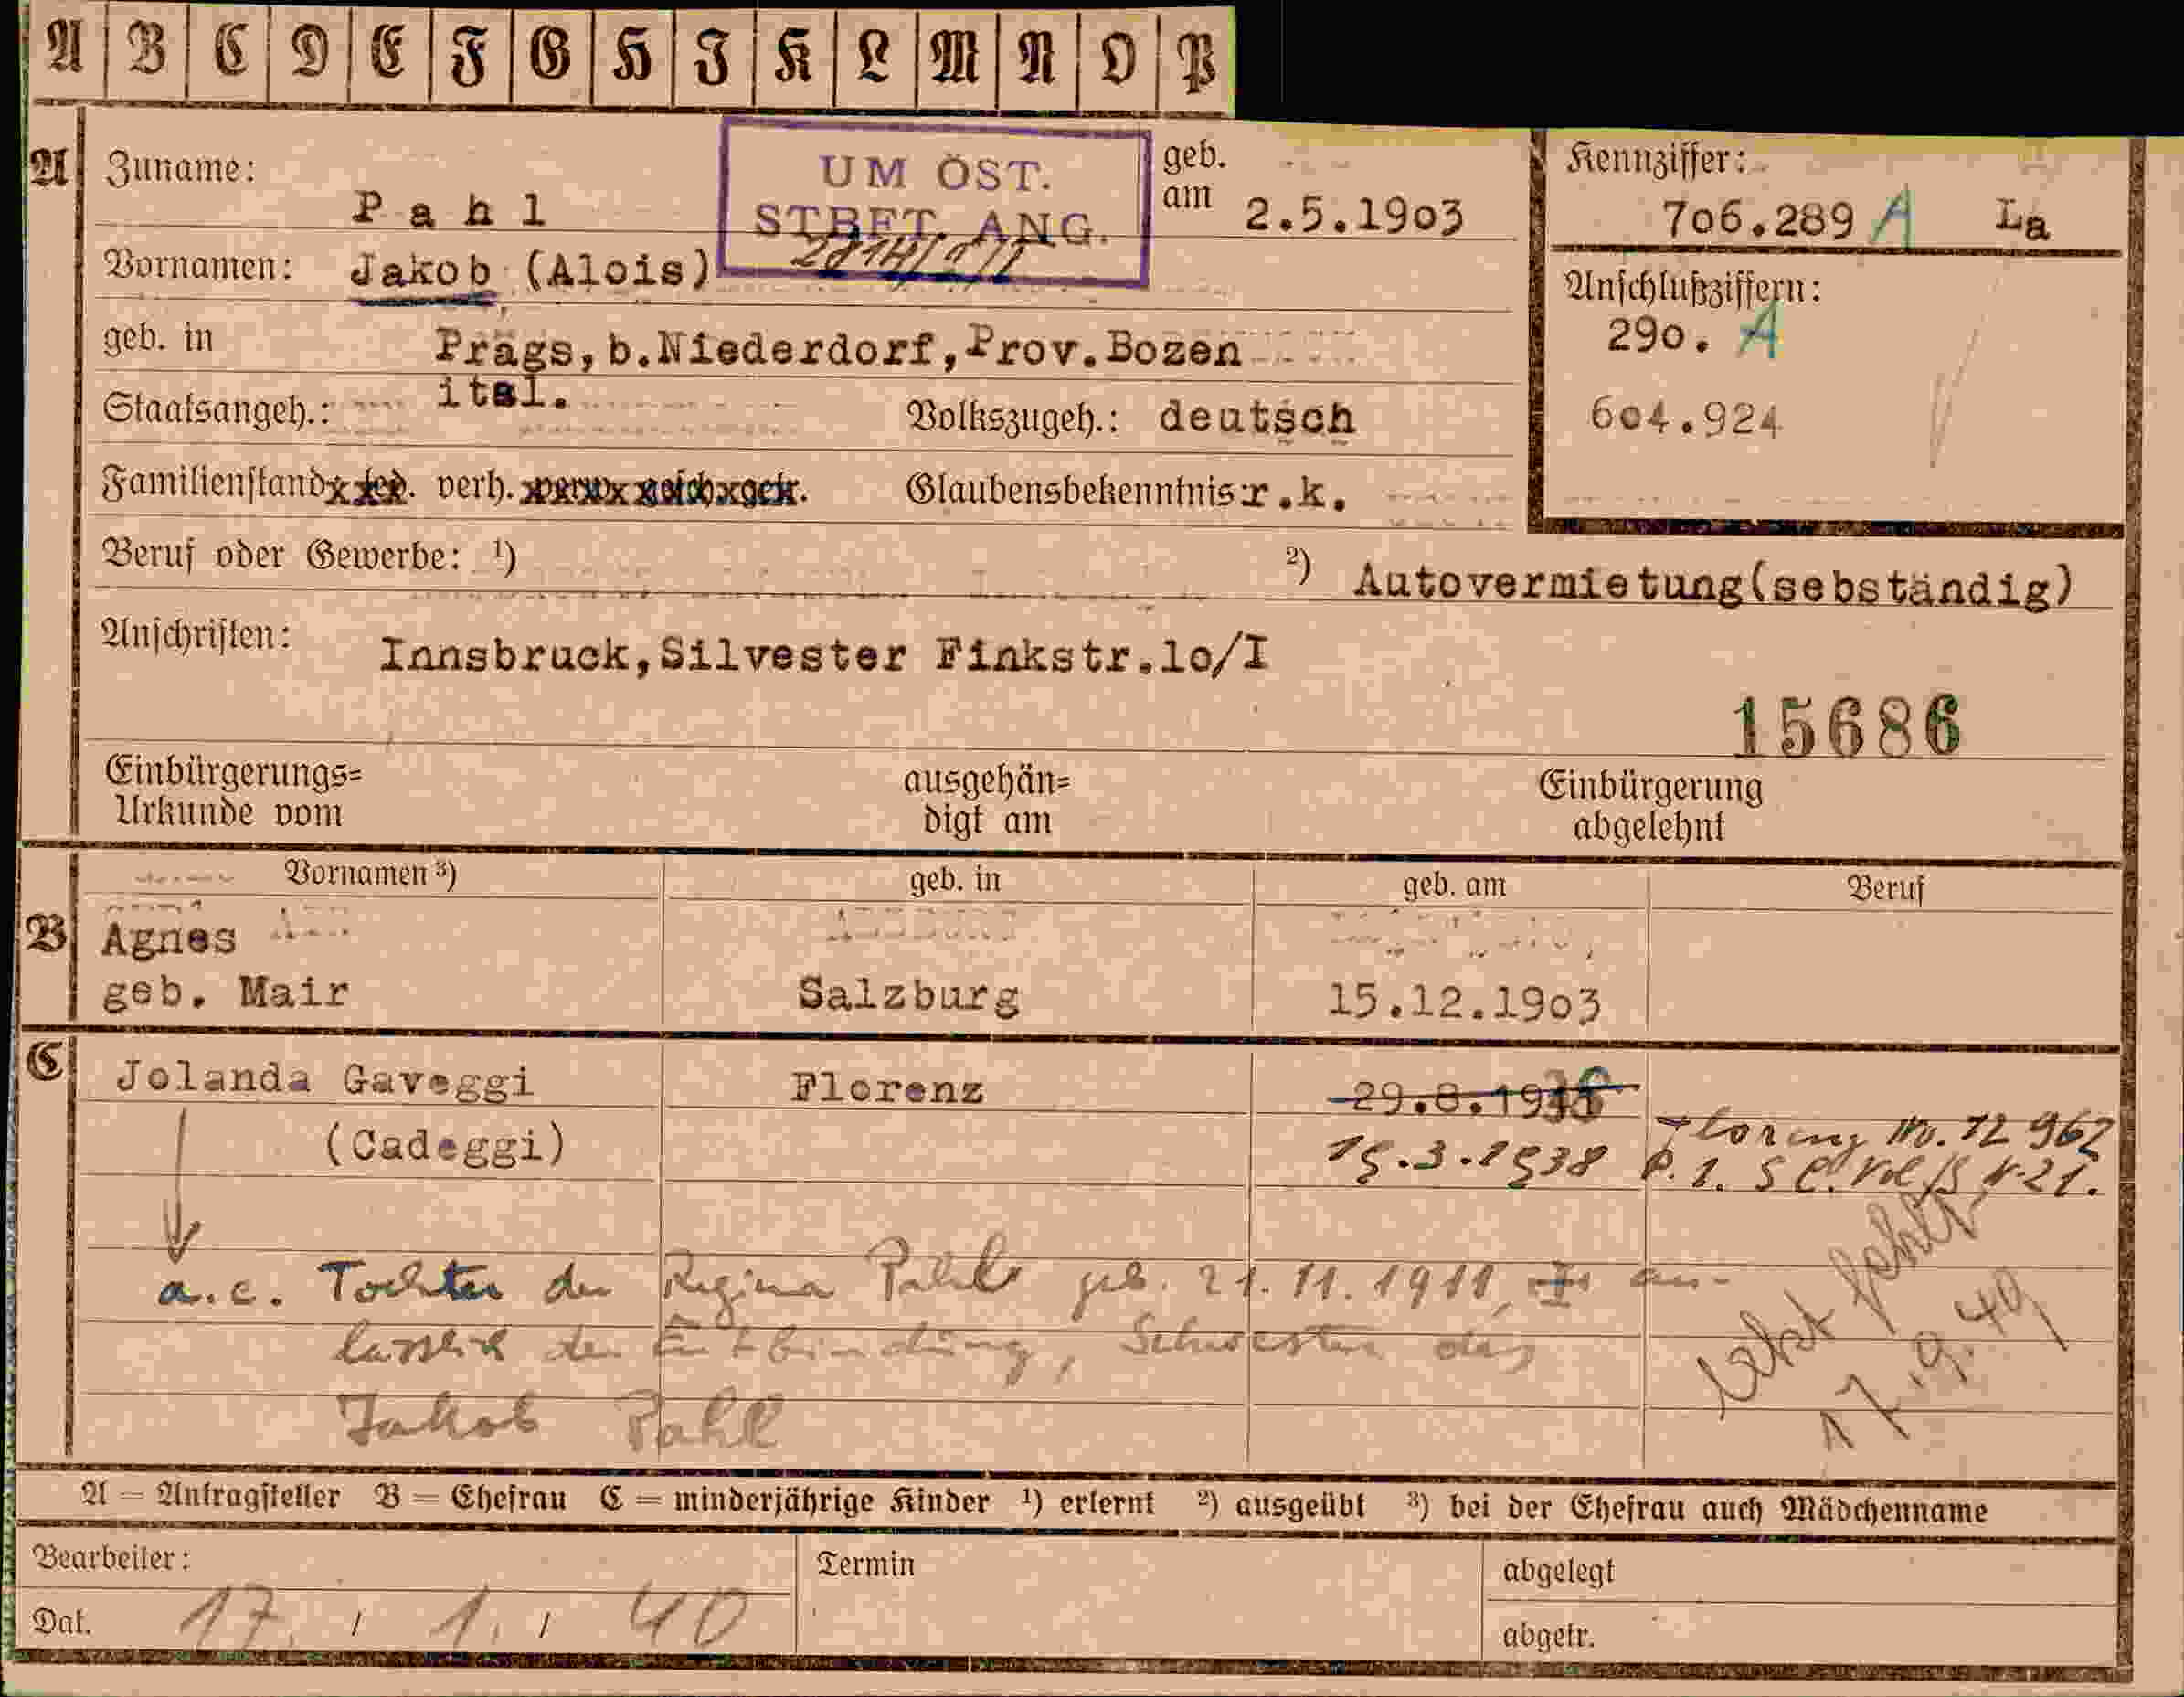 A B C D E F G H I K L M N O P
A Zuname: Pahl
UM ÖST.
STBFT. ANG.
geb. am 2.5.1903
Kennziffer:
706.289 A La
Vornamen: Jakob (Alois)
Anschlußziffern:
290. A
604.924
geb. in Prägs, b.Niederdorf, Prov.Bozen
Staatsangeh.: ital. Volkszugeh.: deutsch
Familienstand verh. Glaubensbekenntnis: r.k.
Beruf oder Gewerbe: ¹) ²) Autovermietung(sebständig)
Anschriften: Innsbruck, Silvester Finkstr.1o/I
15686
Einbürgerungs= Urkunde vom
ausgehän= digt am
Einbürgerung abgelehnt
Vornamen ³) geb. in geb. am Beruf
B Agnes
geb. Mair Salzburg 15.12.1903
C Jolanda Gaveggi Florenz
(Cadeggi) 15.3.1938 12 962
a.c. Tochter der Regina Pahl geb. 21.11.1911, an-
lässlich der Entbindung, Schwester des
Jakob Pahl
17.9.49
A = Antragsteller B = Ehefrau C = minderjährige Kinder ¹) erlernt ²) ausgeübt ³) bei der Ehefrau auch Mädchenname
Bearbeiter: Termin abgelegt
Dat. 17. / 1. / 40 abgetr.